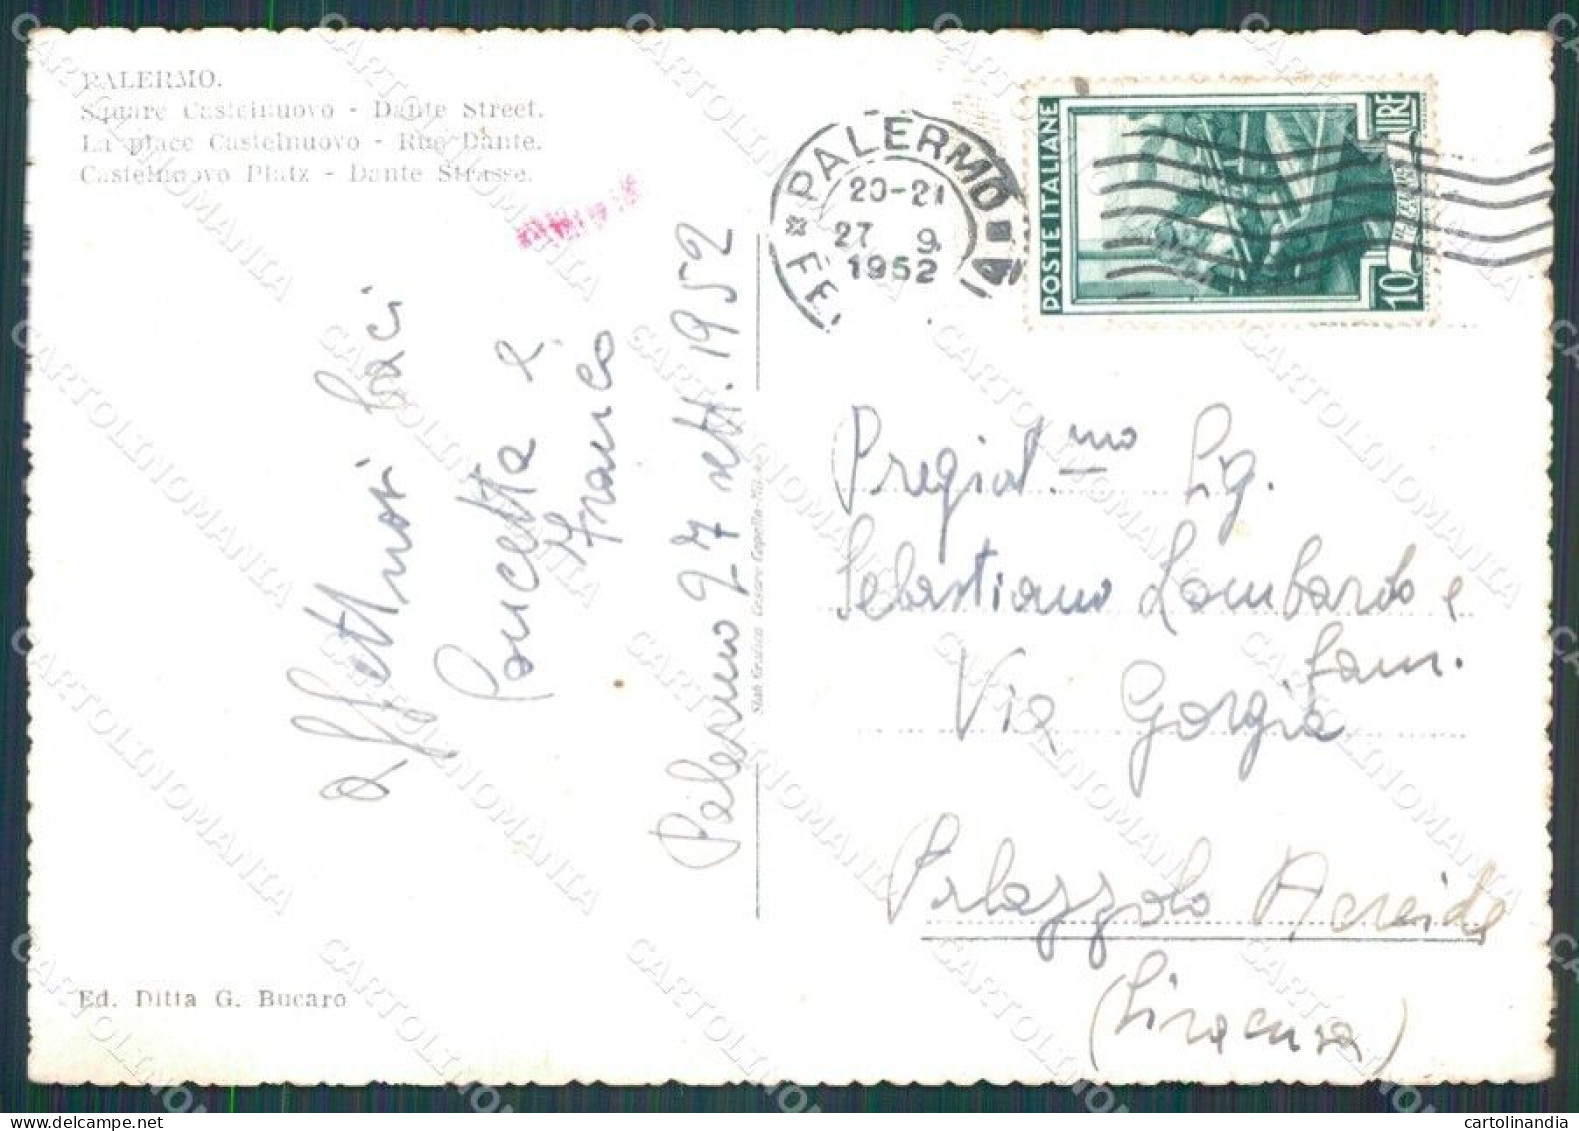 PALERMO.
Square Castelnuovo - Dante Street.
La place Castelnuovo - Rue Dante.
Castelnuovo Platz - Dante Strasse.
PALERMO
20-21
27 9
1952
FE
POSTE ITALIANE
LIRE
10
affettuosi baci
Pucetta e
Franco
Palermo 27 sett. 1952
Stab Grafico Cesare Capello-Milano
Pregiat.mo Sig.
Sebastiano Lombardo e
fam.
Via Gorgia
Palazzolo Acreide
(Siracusa)
Ed. Ditta G. Bucaro
CARTOLINOMANIA
cartolinandia